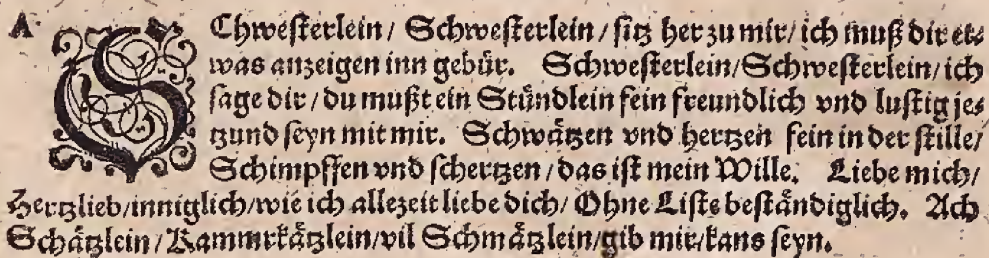 A
SChwesterlein / Schwesterlein / sitz her zu mir / ich muß dir et⸗
was anzeigen inn gebür. Schwesterlein/Schwesterlein/ ich
sage dir / du mußt ein Stündlein fein freundlich vnd lustig je⸗
tzund seyn mit mir. Schwätzen vnd hertzen fein in der stille/
Schimpffen vnd schertzen / das ist mein Wille. Liebe mich/
Hertzlieb/inniglich/wie ich allezeit liebe dich/ Ohne Liste beständiglich. Ach
Schätzlein / Kammrkätzlein/vil Schmätzlein/gib mir/kans seyn.